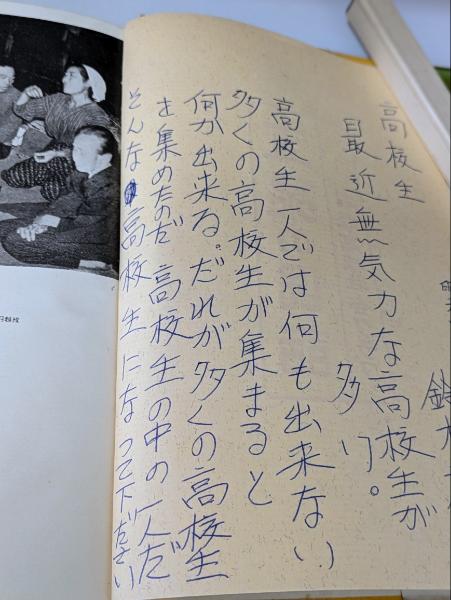 高校生
最近無気力な高校生が
多い。
高校生一人では何も出来ない
多くの高校生が集まると
何か出来る。だれが多くの高校生
を集めたのだ 高校生の中の一人だ
そんな高校生になって下ださい